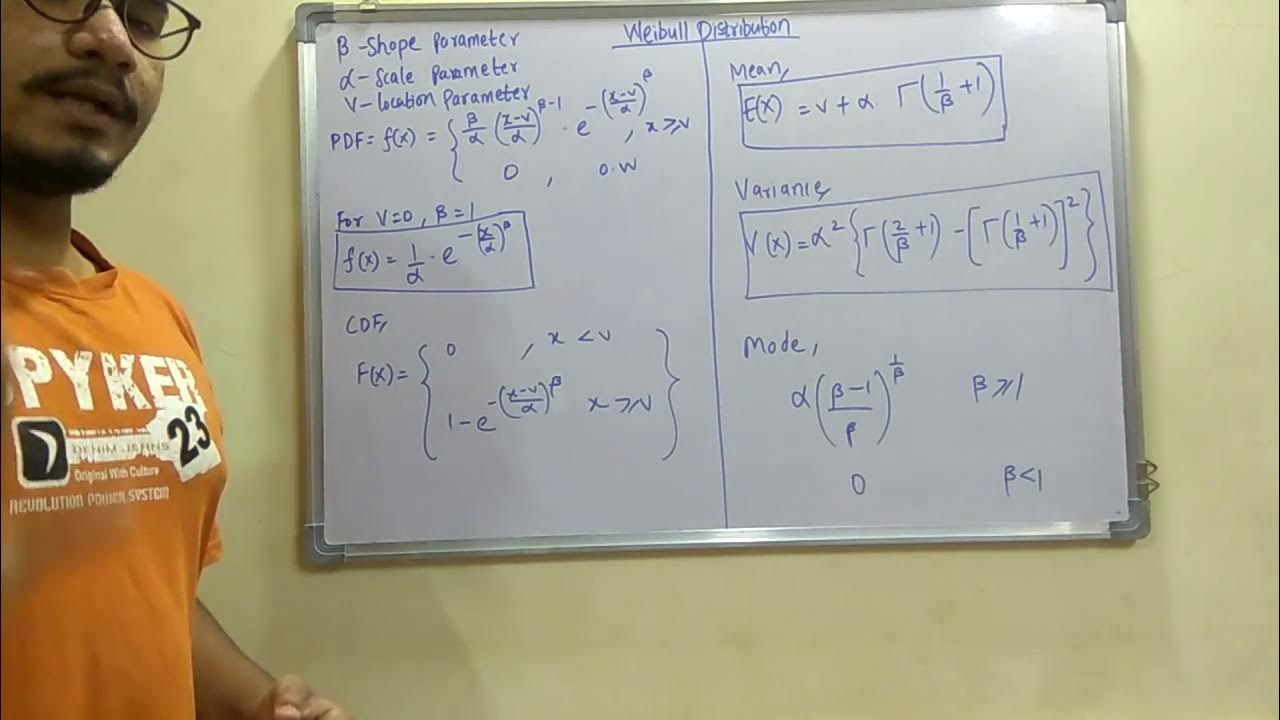 Weibull Distribution
β - Shape Parameter
α - Scale Parameter
ν - location Parameter
PDF = f(x) = { β/α (x-ν/α)^β-1 . e^-(x-ν/α)^β , x ≥ ν
0 , o.w
For ν=0, β=1
f(x) = 1/α . e^-(x/α)^β
CDF,
F(x) = { 0 , x < ν
1 - e^-(x-ν/α)^β x ≥ ν }
Mean,
E(X) = ν + α . Γ(1/β + 1)
Variance,
V(x) = α² { Γ(2/β + 1) - [Γ(1/β + 1)]² }
Mode,
α (β-1/β)^1/β β ≥ 1
0 β < 1
SPYKER
23
DENIM JEANS
Original With Culture
REVOLUTION POWER SYSTEM